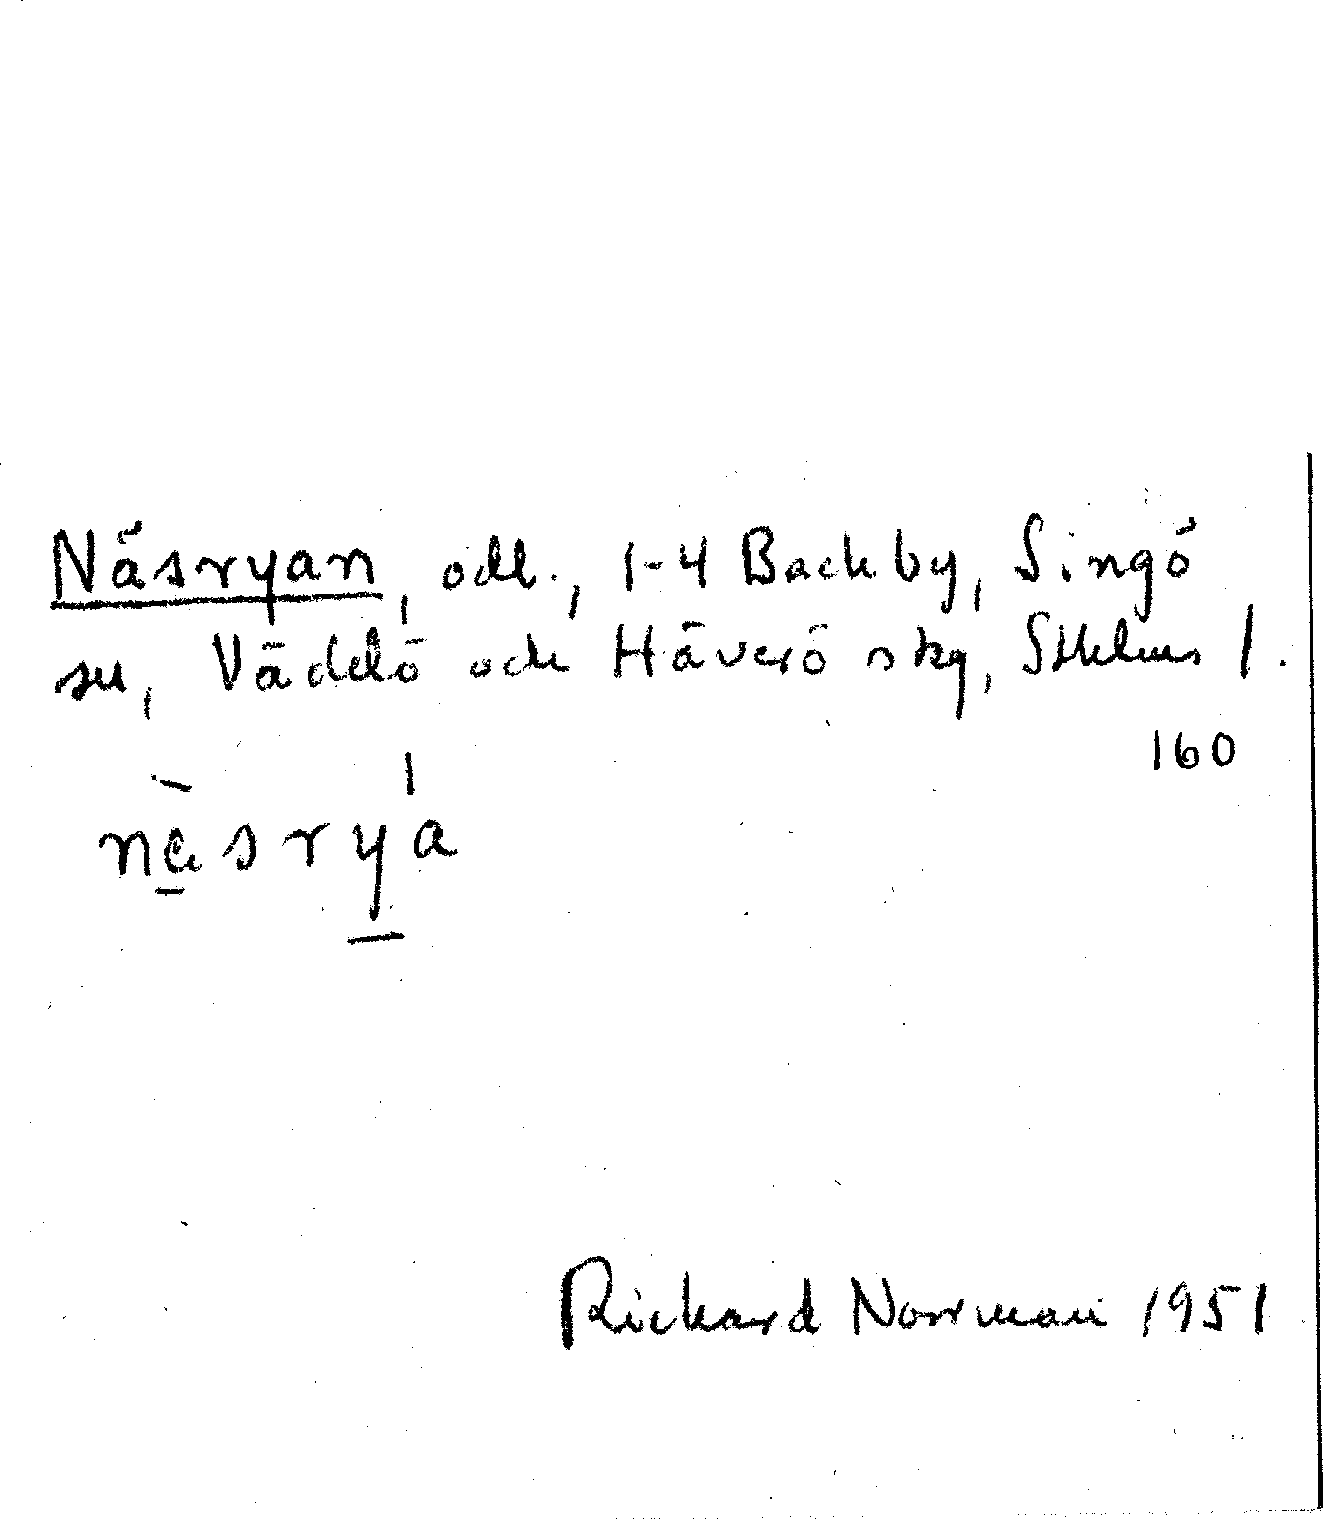 Näsryan, odl., 1-4 Backby, Singö
sn, Vädelö och Häverö skg, Sthlms l.
160
näsrya
Rickard Norrman 1951